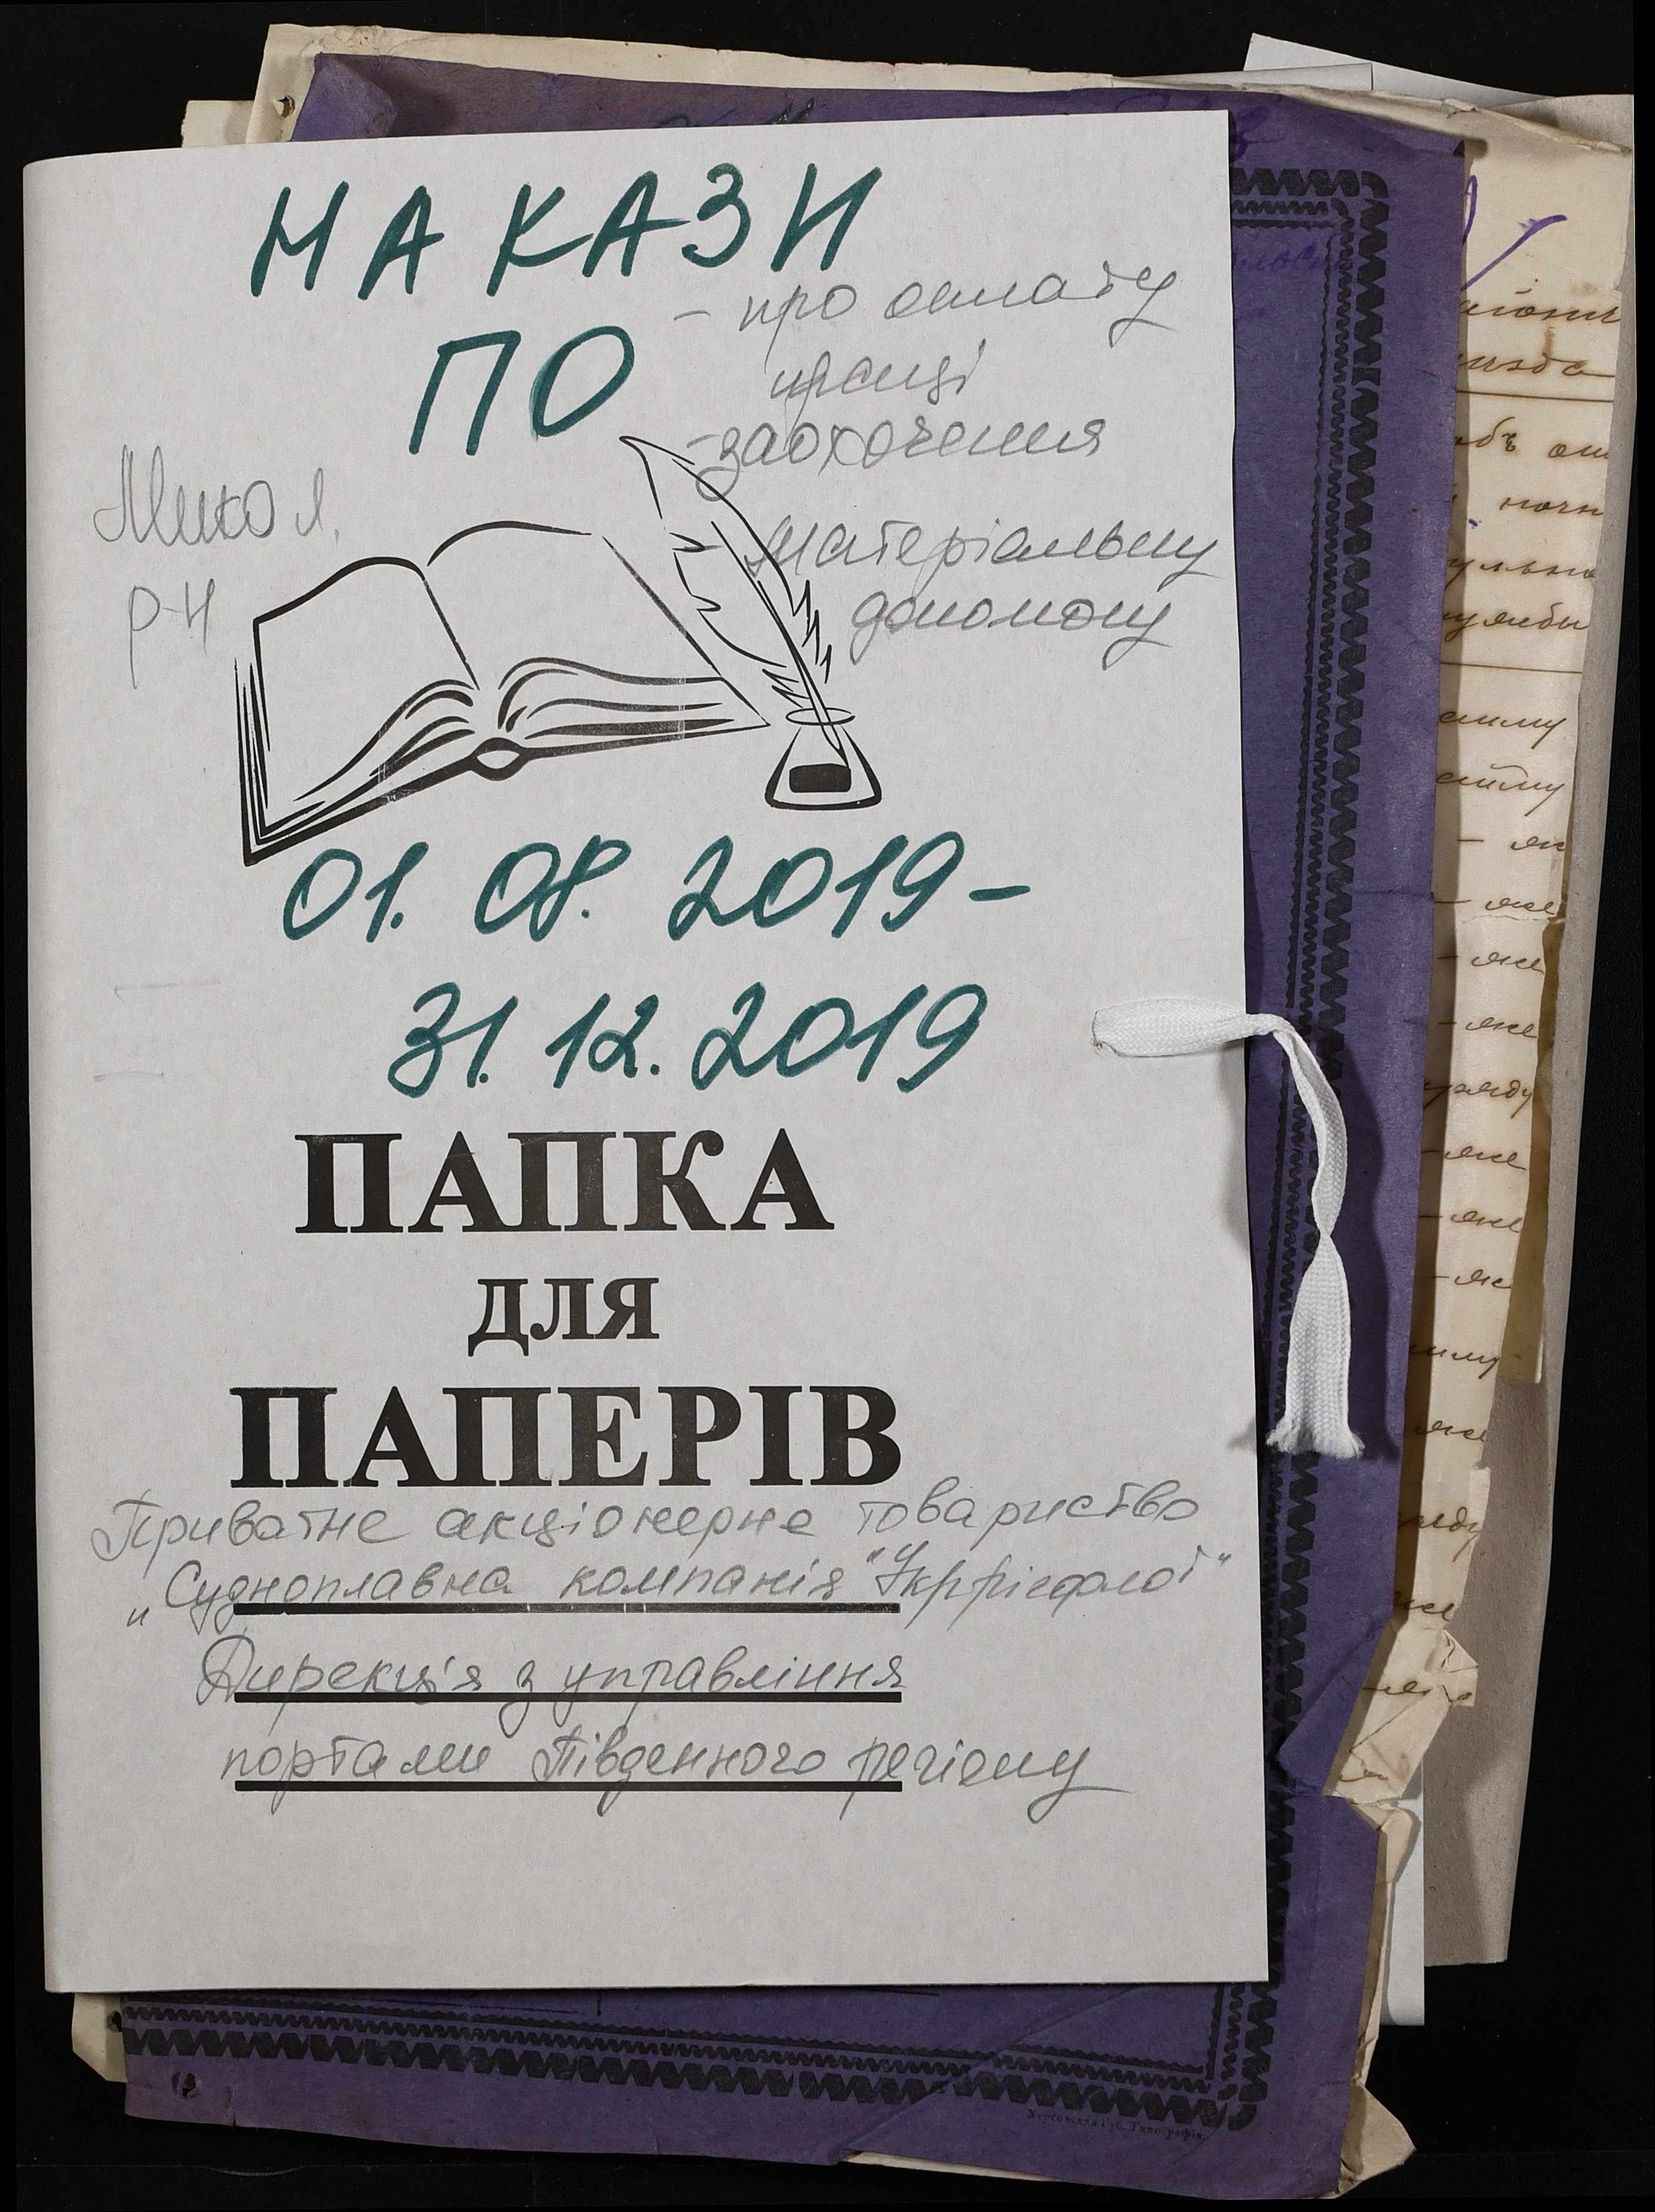 НАКАЗИ
ПО
- про оплату
праці
- заохочення
матеріальну
допомогу
Микол.
р-н
01. 08. 2019 -
31. 12. 2019
ПАПКА
ДЛЯ
ПАПЕРІВ
Приватне акціонерне товариство
„Судноплавна компанія "Укррічфлот"
Дирекція з управління
портами Південного регіону
Херсонская Губ. Типографія
ночн
службы